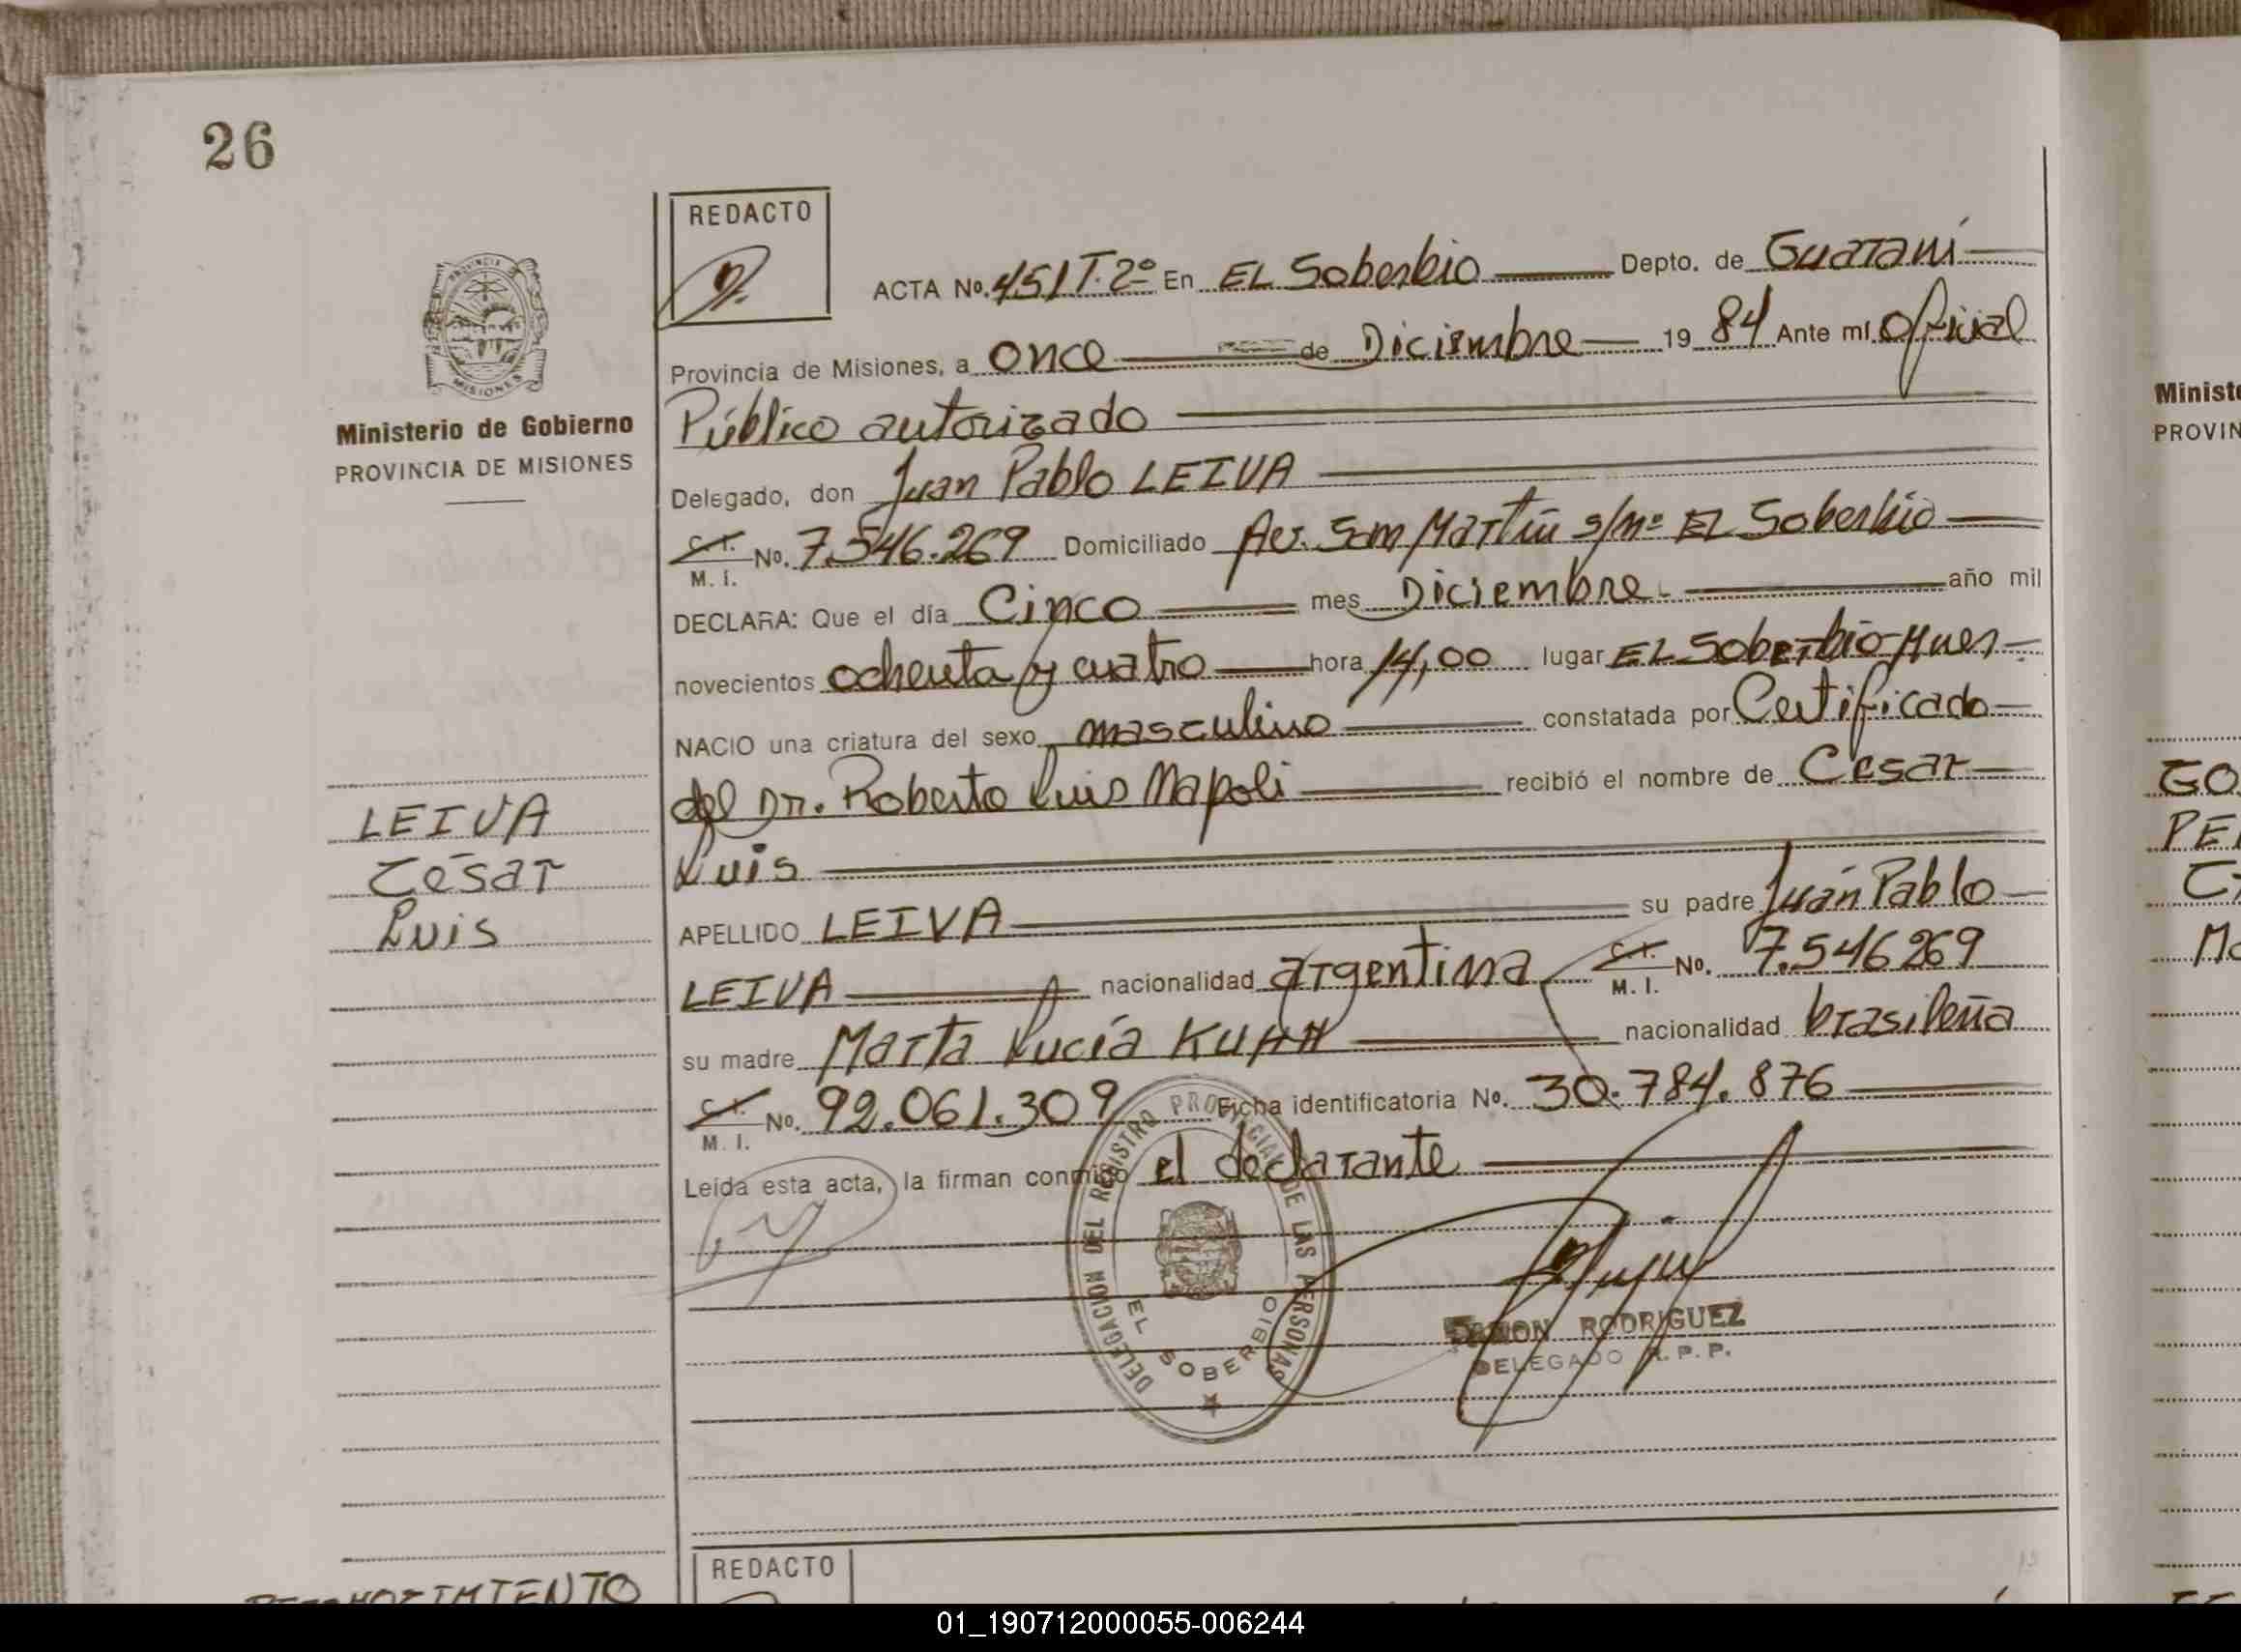 26
REDACTO
ACTA No. 451 T. 2º En EL Soberbio Depto. de Guaraní
Provincia de Misiones, a once de Diciembre 19 84 Ante mí Oficial
Público autorizado
Delegado, don Juan Pablo LEIVA
C. I. No. 7.546.269 Domiciliado Av. San Martín s/nº EL Soberbio
M. I.
DECLARA: Que el día Cinco mes Diciembre año mil
novecientos ochenta y cuatro hora 14,00 lugar EL Soberbio
NACIO una criatura del sexo masculino constatada por Certificado
del Dr. Roberto Luis Napoli recibió el nombre de César
Luis
APELLIDO LEIVA su padre Juán Pablo
LEIVA nacionalidad argentina C. I. No. 7.546 269
M. I.
su madre Marta Lucía KUHN nacionalidad brasileña
C. I. No. 92.061.309 Ficha identificatoria No. 30.784.876
M. I.
Leída esta acta, la firman conmigo el declarante
PROVINCIA
MISIONES
Ministerio de Gobierno
PROVINCIA DE MISIONES
LEIVA
César
Luis
DELEGACION DEL REGISTRO PROVINCIAL DE LAS PERSONAS
EL SOBERBIO
RAMON RODRIGUEZ
DELEGADO R. P. P.
REDACTO
RECONOCIMIENTO
Ministe
PROVIN
GO
PE
01_190712000055-006244